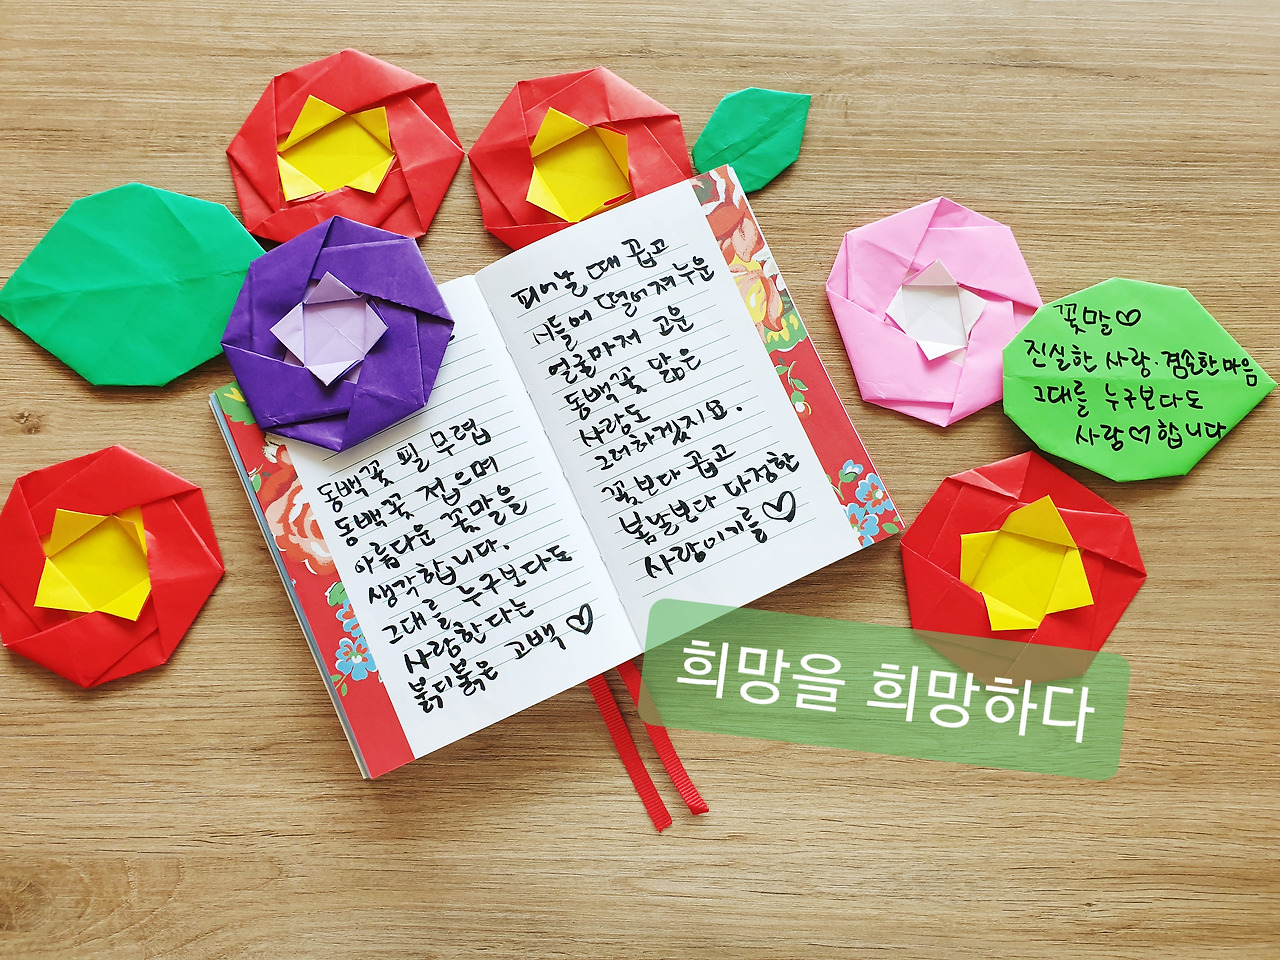 동백꽃 필 무렵
동백꽃 접으며
아름다운 꽃말을
생각합니다.
그대를 누구보다도
사랑한다는
붉디붉은 고백♡
피어날 때 곱고
시들어 떨어져 누운
얼굴마저 고운
동백꽃 닮은
사람도
그러하겠지요.
꽃보다 곱고
봄날보다 다정한
사랑이기를♡
꽃말♡
진실한 사랑·겸손한 마음
그대를 누구보다도
사랑♡합니다
희망을 희망하다